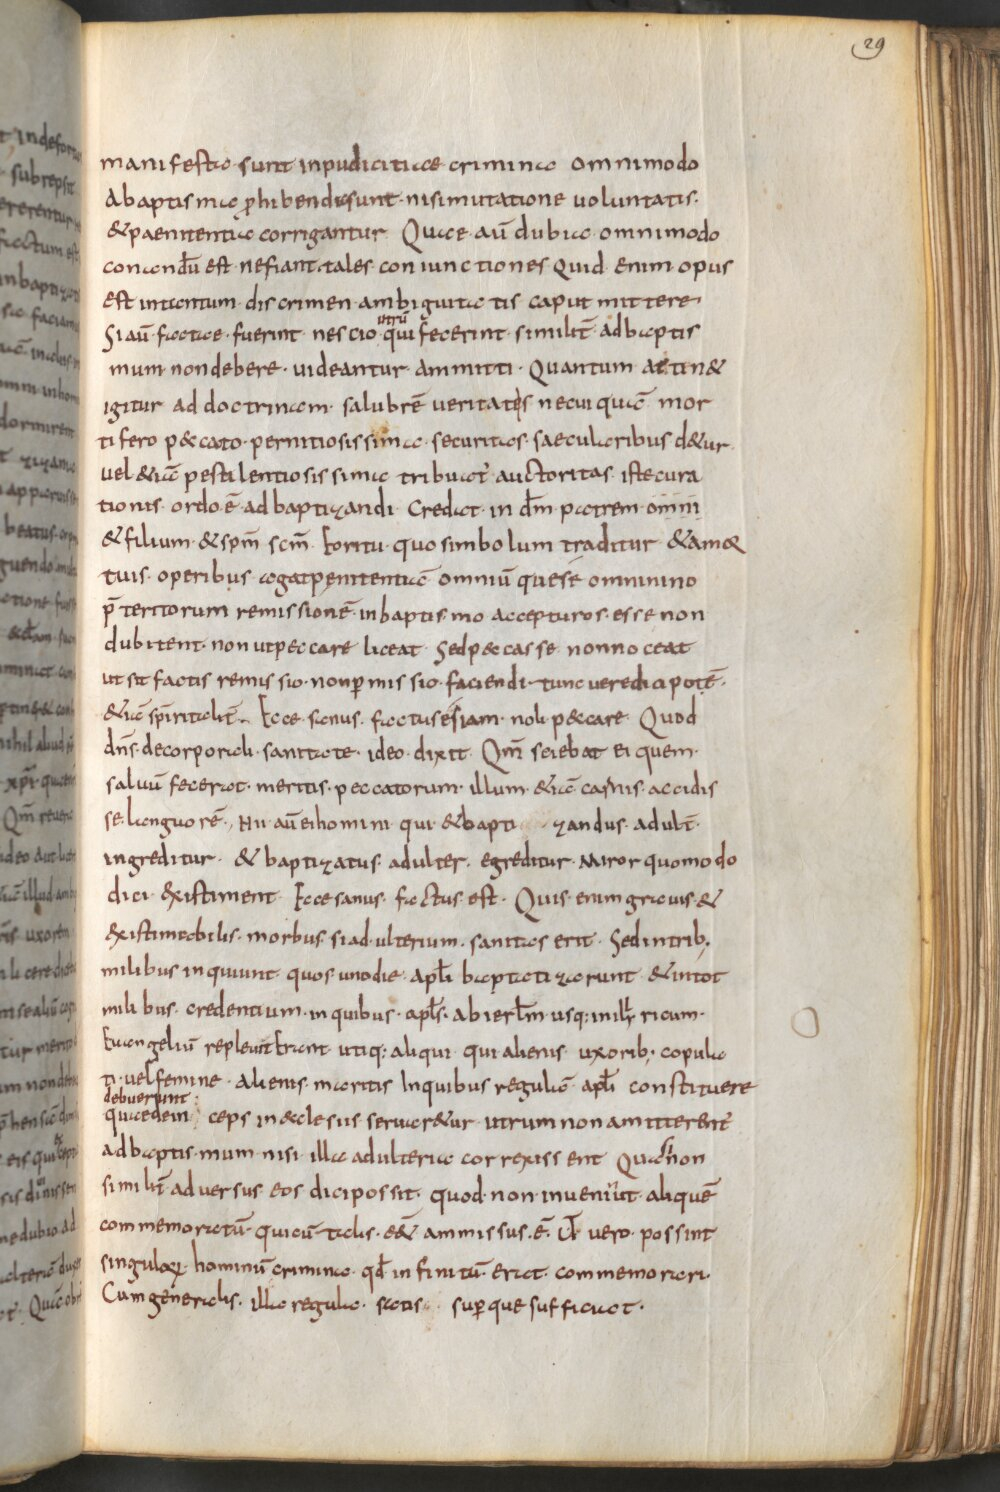 29
manifesta · sunt inpudicitiae crimina omnimodo
Abaptismo ꝓhibendi sunt · nisimutatione voluntatis ·
&paenitentia corrigantur Quae aū dubia omnimodo
conandū est · nefiant · tales · coniunctiones Quid Enim · opus
est intantum · discrimen · ambiguitatis caput mittere
utrū
Siaū factae · fuerint nescio qui fecerint · similit̄ adbaptis
mum · nondebere · uideantur · ammitti · Quantum attin&
igitur ad doctrinam · salubrē veritatis necui quā mor
tifero p&cato · pernitiosissima · securitas · saecularibus d&ur
vel &iā pestilentiosissima tribuat̄ auctoritas · iste cura
tionis · ordo · ē adbaptizandi Credat · in dm̄ patrem · omni
& filium · & spm̄ scm̄ · Eoritu · quosimbolum traditur &amor
tuis · operibus · agatpenitentiā omniū quesē omninino
p̄teritorum remissionē · inbaptismo accepturos · esse non
dubitent · non utpeccare liceat Sedpeccasse nonnoceat
ut sit factis remissio · nonꝑmissio · faciendi · tunc vere dici potē ·
&iā sp̄iritalit̄ · Ecce · sanus · factusesiam · noli p&care · Quod
dn̄s · decorporali · sanitate · ideo · dixit · Qm̄ sciebat ei quem ·
salvū fecerat · meritis · peccatorum · illum · &iā carnis · accidis
se · languorē · Hii aū eihomini qui &bapti zandus · adult̄
ingreditur · & baptizatus · adulter · egreditur · Miror quomodo
dici · existiment Ecce sanus · factus est · Quis · enim gravis &
existimabilis · morbus · siad · ulterium · sanitas erit · Sed intrib;
milibus inquiunt quos unodie apl̄i baptizaverunt · & intot
milibus · credentium · in quibus · apl̄s · ab ierl̄m usq: inillyricum ·
Euangeliū replevit Erant · utiq: aliqui · qui alienis uxorib; copula
ti · vel femine · alienis · maritis Inquibus regulā apl̄i constituere
debuerunt :
quaedein ceps in&clesiis servar&ur utrum non amitterent̄
adbaptis · mum · nisi · illa adulteria correxissent Quā non
similit̄ adversus · eos dicipossit · quod · non · inveniut · aliquē
commemoratū · quicū talis · eē ammissus · ē · Ut vero · possint
singuloꝝ hominū crimina · qd̄ infinitū · erat · commemorari ·
Cum generalis · illa regula · satis superque sufficiat ·